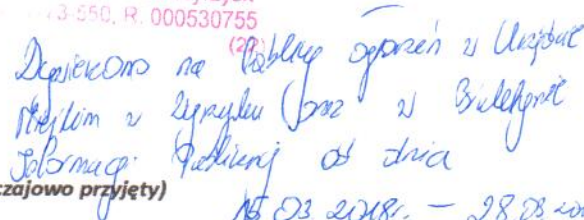 73-550, R. 000530755
(22)
na tablicy ogłoszeń w Urzędzie
Miejskim w oraz w Biuletynie
Informacji Publicznej od dnia
czajowo przyjęty)
15.03.2018r. – 28.03.20